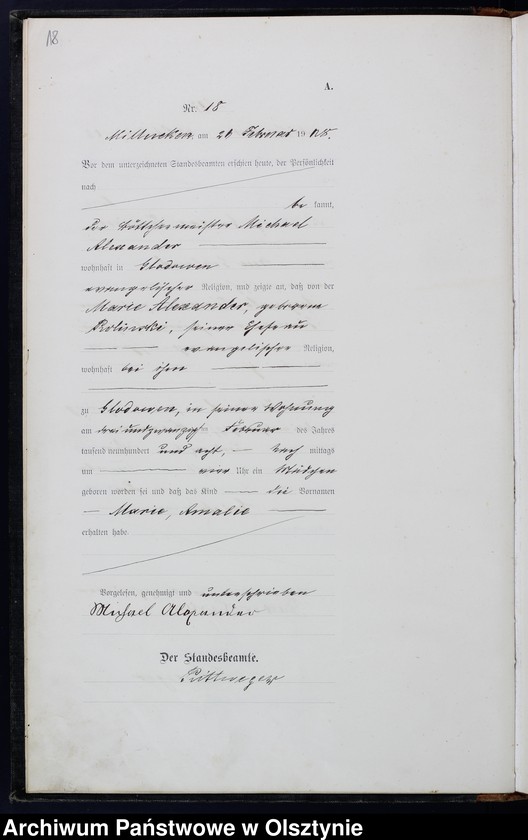 18
A.
Nr. 18
am Februar 19
Vor dem unterzeichneten Standesbeamten erschien heute, der Persönlichkeit
nach
be kannt,
der Böttchermeister Michael
Alexander
wohnhaft in Glodowen
evangelischer Religion, und zeigte an, daß von der
Marie Alexander, geborene
seiner Ehefrau
evangelischer Religion,
wohnhaft bei ihm
zu Glodowen, in seiner Wohnung
am drei und zwanzigsten Februar des Jahres
tausend neunhundert und acht, nach mittags
um vier Uhr ein Mädchen
geboren worden sei und daß das Kind die Vornamen
Marie, Amalie
erhalten habe
Vorgelesen, genehmigt und unterschrieben
Michael Alexander
Der Standesbeamte.
Archiwum Państwowe w Olsztynie